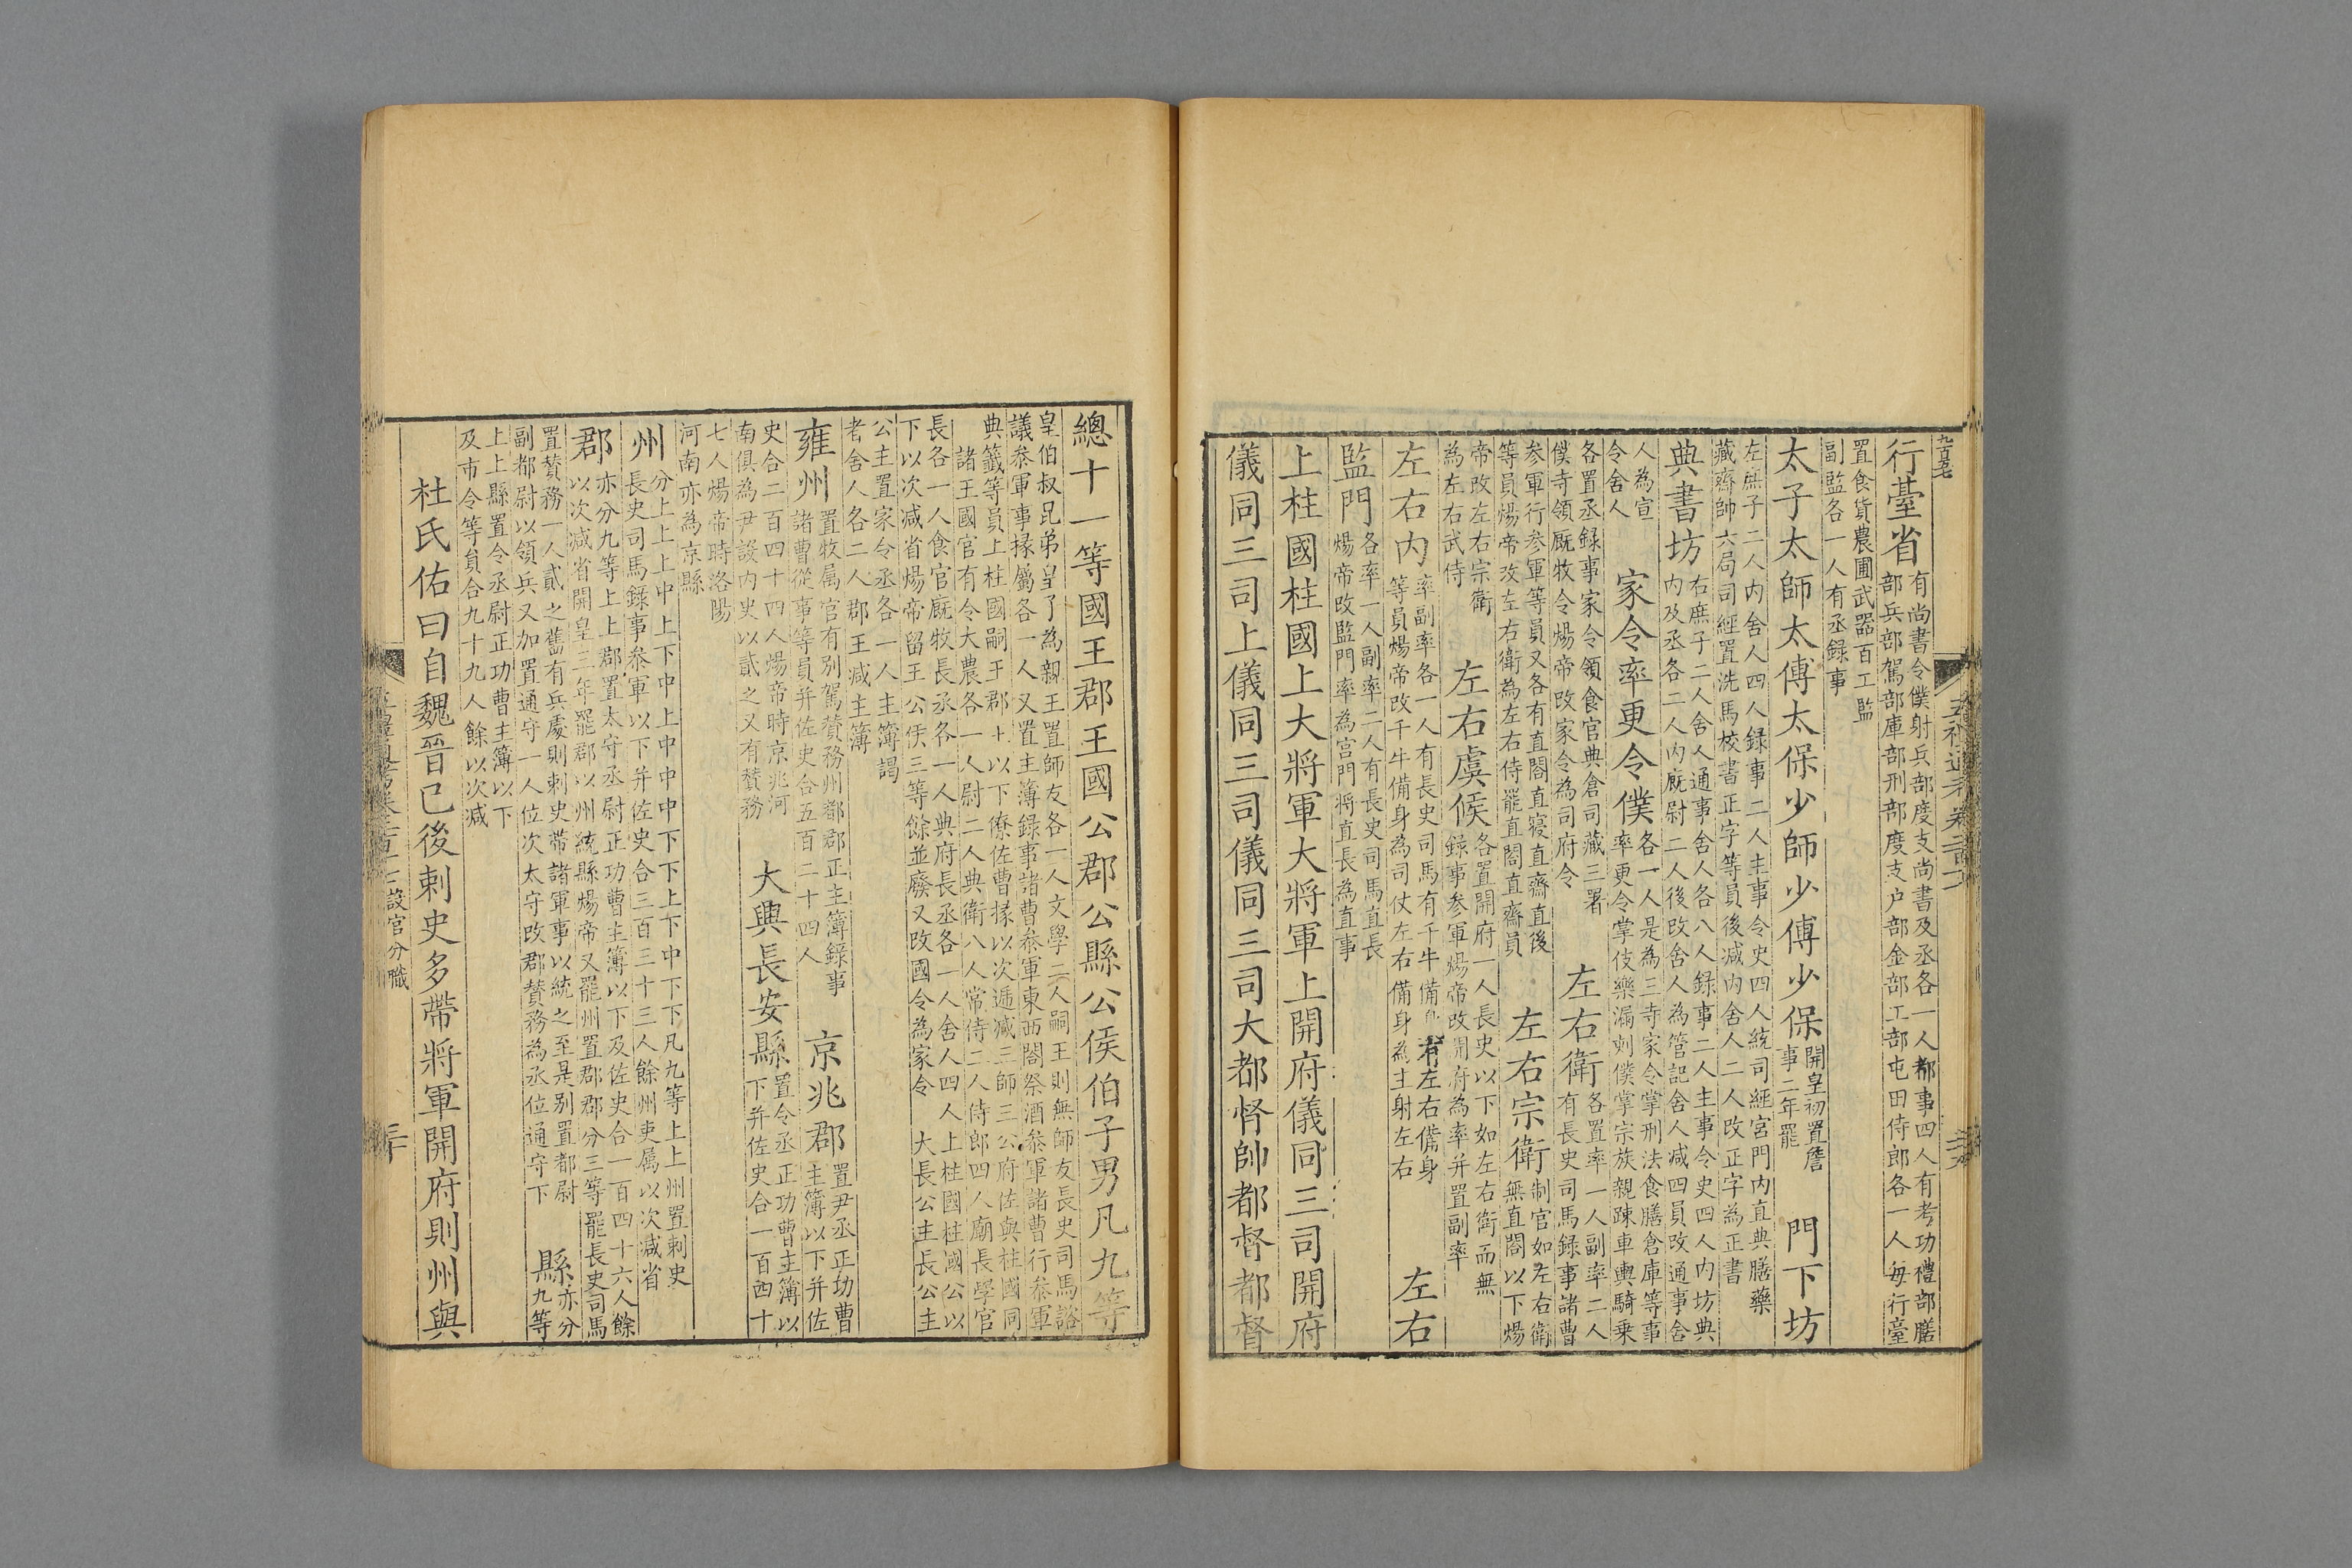 行臺省有尚書令僕射兵部度支尚書及丞各一人都事四人有考功禮部膳
部兵部駕部庫部刑部度支户部金部工部屯田侍郎各一人每行臺
置食貨農圃武器百工監
副監各一人有丞録事
太子太師太傅太保少師少傅少保開皇初置詹
事二年罷門下坊
左庶子二人内舍人四人録事二人主事令史四人統司經宫門内直典膳藥
藏齋帥六局司經置洗馬校書正字等員後減内舍人二人改正字為正書
典書坊右庶子二人舍人通事舍人各八人録事二人主事令史四人内坊典
内及丞各二人内厩尉二人後改舍人為管記舍人減四員改通事舍
人為宣
令舍人家令率更令僕各一人是為三寺家令掌刑法食膳倉庫等事
率更令掌伎樂漏刻僕掌宗族親踈車輿騎乗
各置丞録事家令領食官典倉司藏三署
僕寺領厩牧令煬帝改家令為司府令左右衛各置率一人副率二人
有長史司馬録事諸曹
参軍行参軍等員又各有直閤直寝直齋直後
等員煬帝改左右衛為左右侍罷直閤直齋員左右宗衛制官如左右衛
無直閤以下煬
帝改左右宗衛
為左右武侍左右虞候各置開府一人長史以下如左右衛而無
録事参軍煬帝改開府為率并置副率
左右内率副率各一人有長史司馬有千牛備身有左右備身
等員煬帝改千牛備身為司仗左右備身為主射左右左右
監門各率一人副率二人有長史司馬直長
煬帝改監門率為宫門將直長為直事
上柱國柱國上大將軍大將軍上開府儀同三司開府
儀同三司上儀同三司儀同三司大都督帥都督都督
總十一等國王郡王國公郡公縣公侯伯子男凡九等
皇伯叔昆弟皇子為親王置師友各一人文學二人嗣王則無師友長史司馬諮
議叅軍事掾屬各一人又置主簿録事諸曹叅軍東西閤祭酒叅軍諸曹行叅軍
典籤等員上柱國嗣王郡王以下僚佐曹掾以次遞减三師三公府佐與柱國同
諸王國官有令大農各一人尉二人典衛八人常侍二人侍郎四人廟長學官
長各一人食官厩牧長丞各一人典府長丞各一人舍人四人上柱國柱國公以
下以次減省煬帝留王公侯三等餘並廢又改國令為家令大長公主長公主
公主置家令丞各一人主簿謁
者舍人各二人郡王減主簿
雍州置牧属官有别駕賛務州都郡正主簿録事
諸曹從事等員并佐史合五百二十四人京兆郡置尹丞正功曹
主簿以下并佐
史合二百四十四人煬帝時京兆河
南俱為尹設内史以貳之又有賛務大興長安縣置令丞正功曹主簿以
下并佐史合一百四十
七人煬帝時洛陽
河南亦為京縣
州分上上上中上下中上中中中下下上下中下下凡九等上上州置刺史
長史司馬録事叅軍以下并佐史合三百二十三人餘州吏属以次減省
郡亦分九等上上郡置太守丞尉正功曹主簿以下及佐史合一百四十六人餘
以次減省開皇三年罷郡以州統縣煬帝又罷州置郡郡分三等罷長史司馬
置賛務一人貳之舊有兵處則刺史帶諸軍事以統之至是别置都尉
副都尉以領兵又加置通守一人位次太守改郡賛務為丞位通守下縣亦分
九等
上上縣置令丞尉正功曹主簿以下
及市令等員合九十九人餘以次减
杜氏佑曰自魏晉已後刺史多帶將軍開府則州與